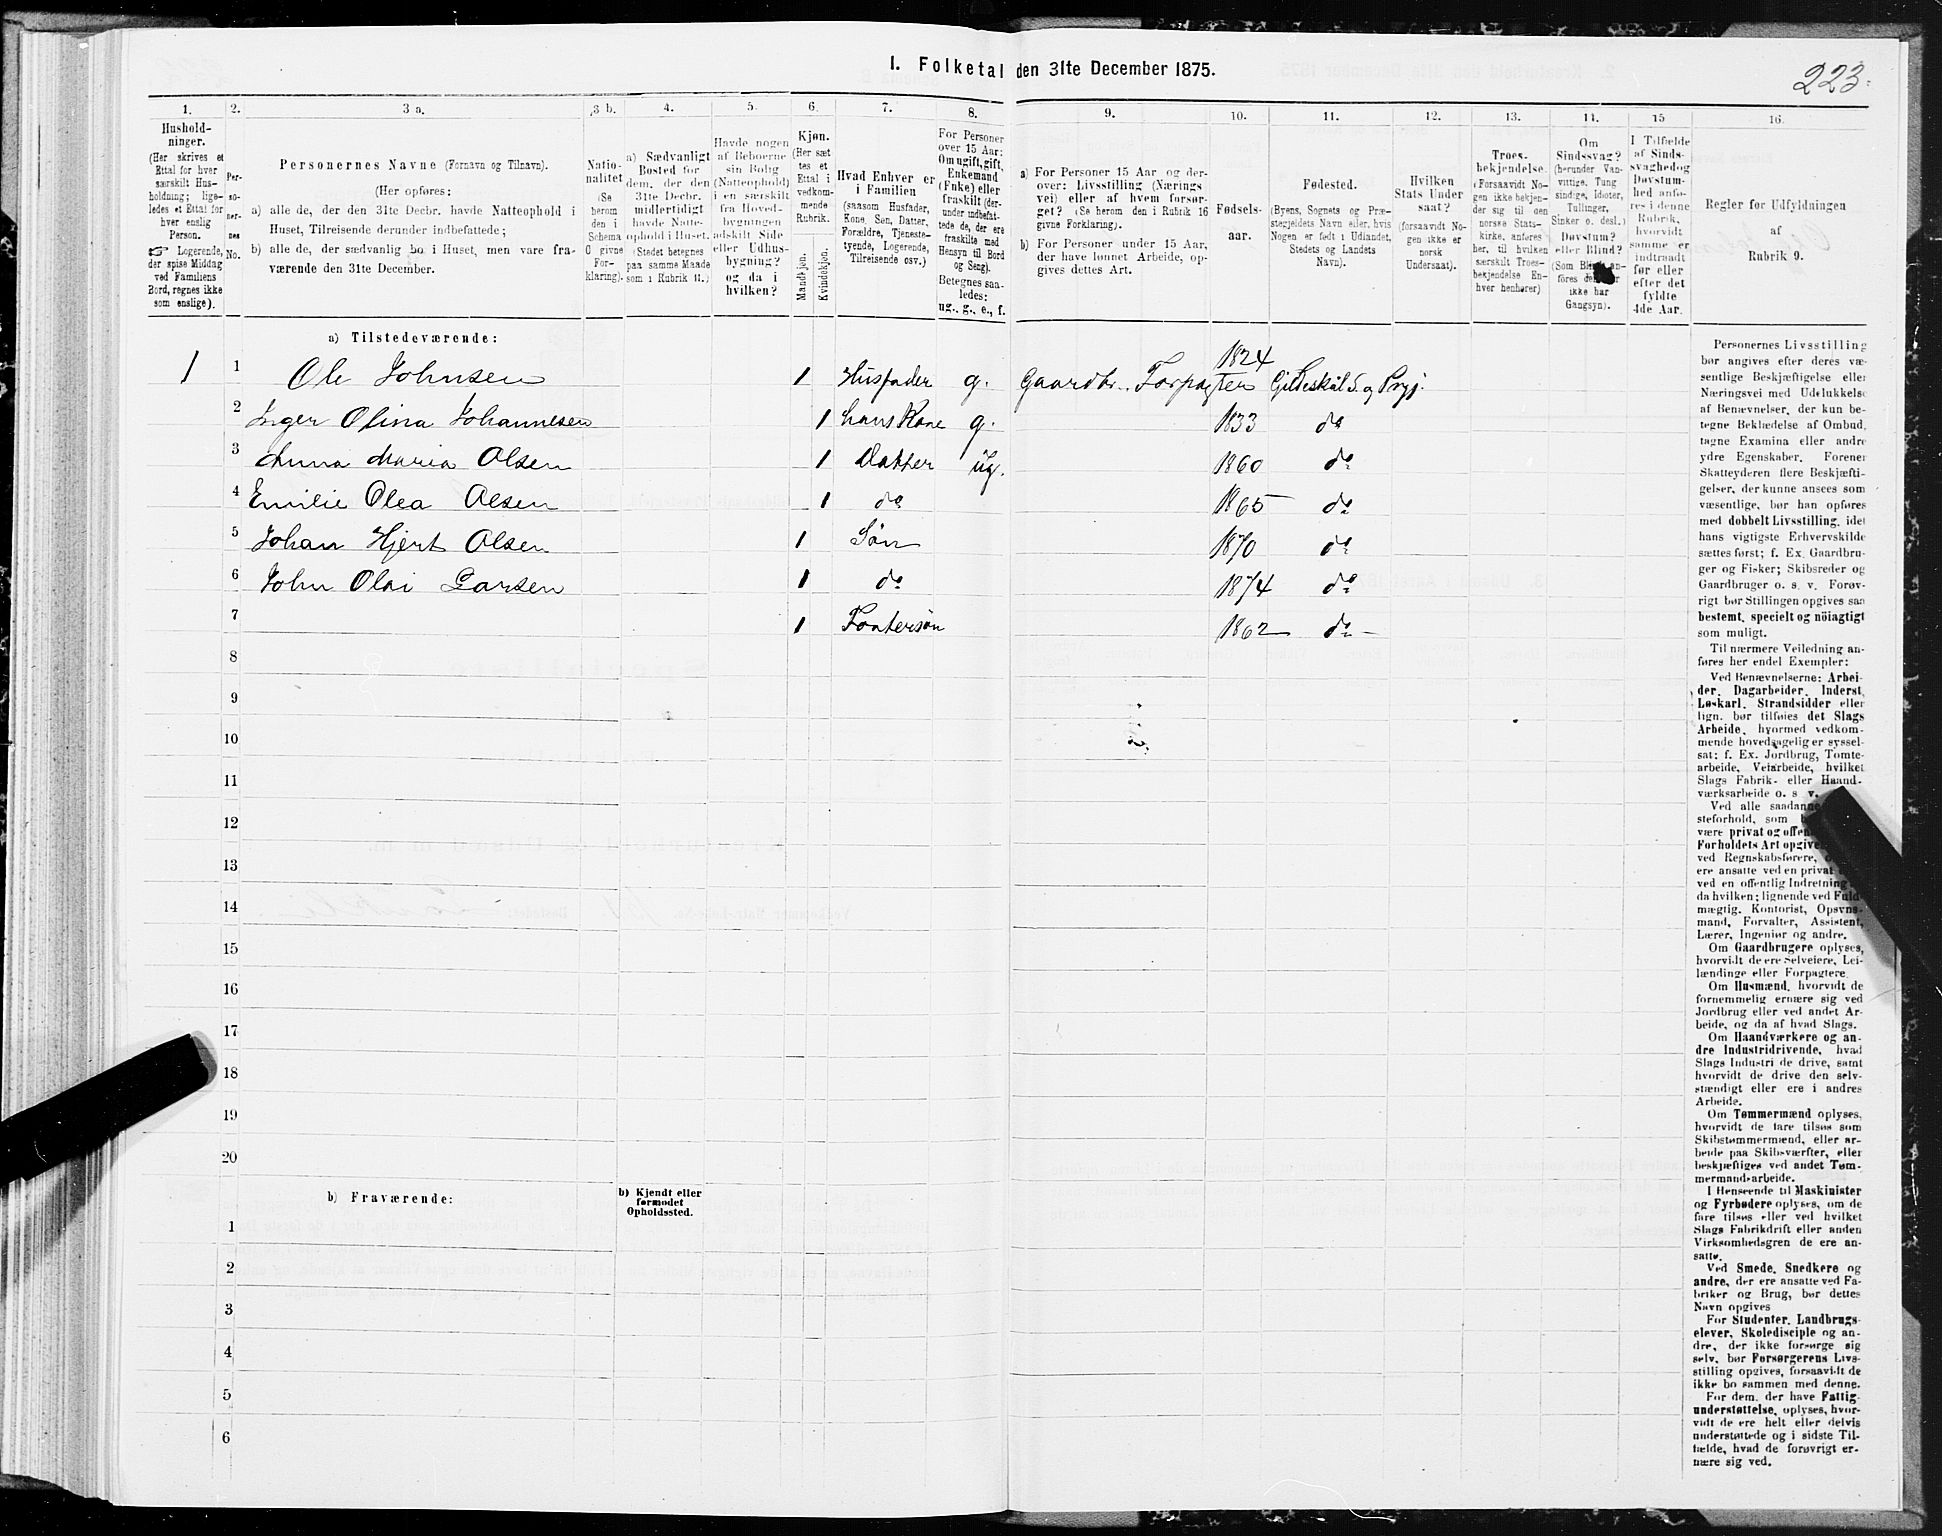 I. Folketal den 31te December 1875.
223.
1. 2. 3 a. 3 b. 4. 5. 6. 7. 8. 9. 10. 11. 12. 13. 14. 15 16.
Hushold-
ninger.
(Her skrives et
Ettal for hver
særskilt Hus-
holdning; lige-
ledes et Ettal for
hver enslig
Person.
☞ Logerende,
der spise Middag
ved Familiens
Bord, regnes ikke
som enslige).
Per-
so-
ner-
nes
No.
Personernes Navne (Fornavn og Tilnavn).
(Her opføres:
a) alle de, der den 31te Decbr. havde Natteophold i
Huset, Tilreisende derunder indbefattede;
b) alle de, der sædvanlig bo i Huset, men vare fra-
værende den 31te December.
Natio-
nalitet
(Se
herom
den i
Schema
O givne
For-
klaring).
a) Sædvanligt
Bosted for
dem, der den
31te Decbr.
midlertidigt
havde Natte-
ophold i Huset.
(Stedet betegnes
paa samme Maade
som i Rubrik 11.)
Havde nogen
af Beboerne
sin Bolig
(Natteophold)
i en særskilt
fra Hoved-
bygningen
adskilt Side
eller Udhus-
bygning?
og da i
hvilken?
Kjøn.
(Her sæt
tes et
Ettal i
vedkom-
mende
Rubrik.
Mandkjøn.
Kvindekjøn.
Hvad Enhver er
i Familien
(saasom Husfader,
Kone, Søn, Datter,
Forældre, Tjeneste-
tyende, Logerende,
Tilreisende osv.)
For Personer
over 15 Aar:
Om ugift, gift,
Enkemand
(Enke) eller
fraskilt (der-
under indbefat-
tede de, der ere
fraskilte med
Hensyn til Bord
og Seng).
Betegnes saa-
ledes:
ug., g., e., f.
a) For Personer 15 Aar og der-
over: Livsstilling (Nærings
vei) eller af hvem forsør-
get? (Se herom den i Rubrik 16
givne Forklaring).
b) For Personer under 15 Aar,
der have lønnet Arbeide, op-
gives dettes Art.
Fødsels-
aar.
Fødested.
(Byens, Sognets og Præ-
stegjeldets Navn eller, hvis
Nogen er født i Udlandet,
Stedets og Landets
Navn).
Hvilken
Stats Under
saat?
(forsaavidt No-
gen ikke er
norsk
Undersaat).
Troes-
bekjendelse.
(Forsaavidt No-
gen ikke bekjen-
der sig til den
norske Stats-
kirke, anføres
her, til hvilken
særskilt Troes-
bekjendelse En-
hver henhører)
Om
Sindssvag?
(herunder Van-
vittige, Tung
sindige, Idioter,
Tullinger,
Sinker o. desl.)
Døvstum?
eller Blind?
(Som Blinde an-
føres de, der
ikke har
Gangsyn).
I Tilfælde
af Sinds-
svaghed og
Døvstum-
hed anfø-
res i denne
Rubrik,
hvorvidt
samme er
indtraadt
før eller
efter det
fyldte
4de Aar.
Regler for Udfyldningen
af
Rubrik 9.
a) Tilstedeværende:
1 1 Ole Johnsen 1 Husfader g. Gaardbr. Forpagter 1824 Gildeskål S. og Prgj.
2 Inger Olina Johannesen 1 hans Kone g. 1833 do
3 Anna Maria Olsen 1 Datter ug. 1860 do
4 Emilie Olea Olsen 1 do 1865 do
5 Johan Hjert Olsen 1 Søn 1870 do
6 John Olai Larsen 1 do 1874 do
7 1 Fostersøn 1862 do
8
9
10
11
12
13
14
15
16
17
18
19
20
b) Fraværende:
b) Kjendt eller
formodet
Opholdssted.
1
2
3
4
5
6
Personernes Livsstilling
bør angives efter deres væ-
sentlige Beskjæftigelse eller
Næringsvei med Udelukkelse
af Benævnelser, der kun be-
tegne Beklædelse af Ombud,
tagne Examina eller andre
ydre Egenskaber. Forener
Skatteyderen flere Beskjæfti-
gelser, der kunne ansees som
væsentlige, bør han opføres
med dobbelt Livsstilling, idet
hans vigtigste Erhvervskilde
sættes først; f. Ex. Gaardbru-
ger og Fisker; Skibsreder og
Gaardbruger o. s. v. Forøv-
rigt bør Stillingen opgives saa
bestemt, specielt og nöiagtigt
som muligt.
Til nærmere Veiledning an-
føres her endel Exempler:
Ved Benævnelserne: Arbei-
der, Dagarbeider, Inderst,
Løskarl, Strandsidder eller
lign. bør tilføies det Slags
Arbeide, hvormed vedkom-
mende hovedsagelig er syssel-
sat; f. Ex. Jordbrug, Tomte-
arbeide, Veiarbeide, hvilket
Slags Fabrik- eller Haand-
værksarbeide o. s. v.
Ved alle saadanne
steforhold, som
være privat og offen
Forholdets Art opgives
ved Regnskabsførere,
ere ansatte ved en privat
ved en offentlig Indretning
da hvilken; lignende ved Fuld-
mægtig, Kontorist, Opsyns-
mand, Forvalter, Assistent,
Lærer, Ingeniør og andre.
Om Gaardbrugere oplyses,
hvorvidt de ere Selveiere, Lei-
lændinge eller Forpagtere.
Om Husmænd, hvorvidt de
fornemmelig ernære sig ved
Jordbrug eller ved andet Ar-
beide, og da af hvad Slags.
Om Haandværkere og an-
dre Industridrivende, hvad
Slags Industri de drive, samt
hvorvidt de drive den selv-
stændigt eller ere i andres
Arbeide.
Om Tømmermænd oplyses,
hvorvidt de fare tilsøs som
Skibstømmermænd, eller ar-
beide paa Skibsværfter, eller
beskjæftiges ved andet Tøm-
mermandsarbeide.
I Henseende til Maskinister
og Fyrbødere oplyses, om de
fare tilsøs eller ved hvilket
Slags Fabrikdrift eller anden
Virksomhedsgren de ere an-
satte.
Ved Smede, Snedkere og
andre, der ere ansatte ved Fa-
briker og Brug, bør dettes
Navn opgives
For Studenter, Landbrugs-
elever, Skoledisciple og an-
dre, der ikke forsørge sig
selv, bør Forsørgerens Livs-
stilling opgives, forsaavidt de
ikke bo sammen med denne.
For dem, der have Fattig-
understøttelse, oplyses, hvor-
vidt de ere helt eller delvis
understøttede og i sidste Til-
fælde, hvad de forøvrigt er-
nære sig ved.